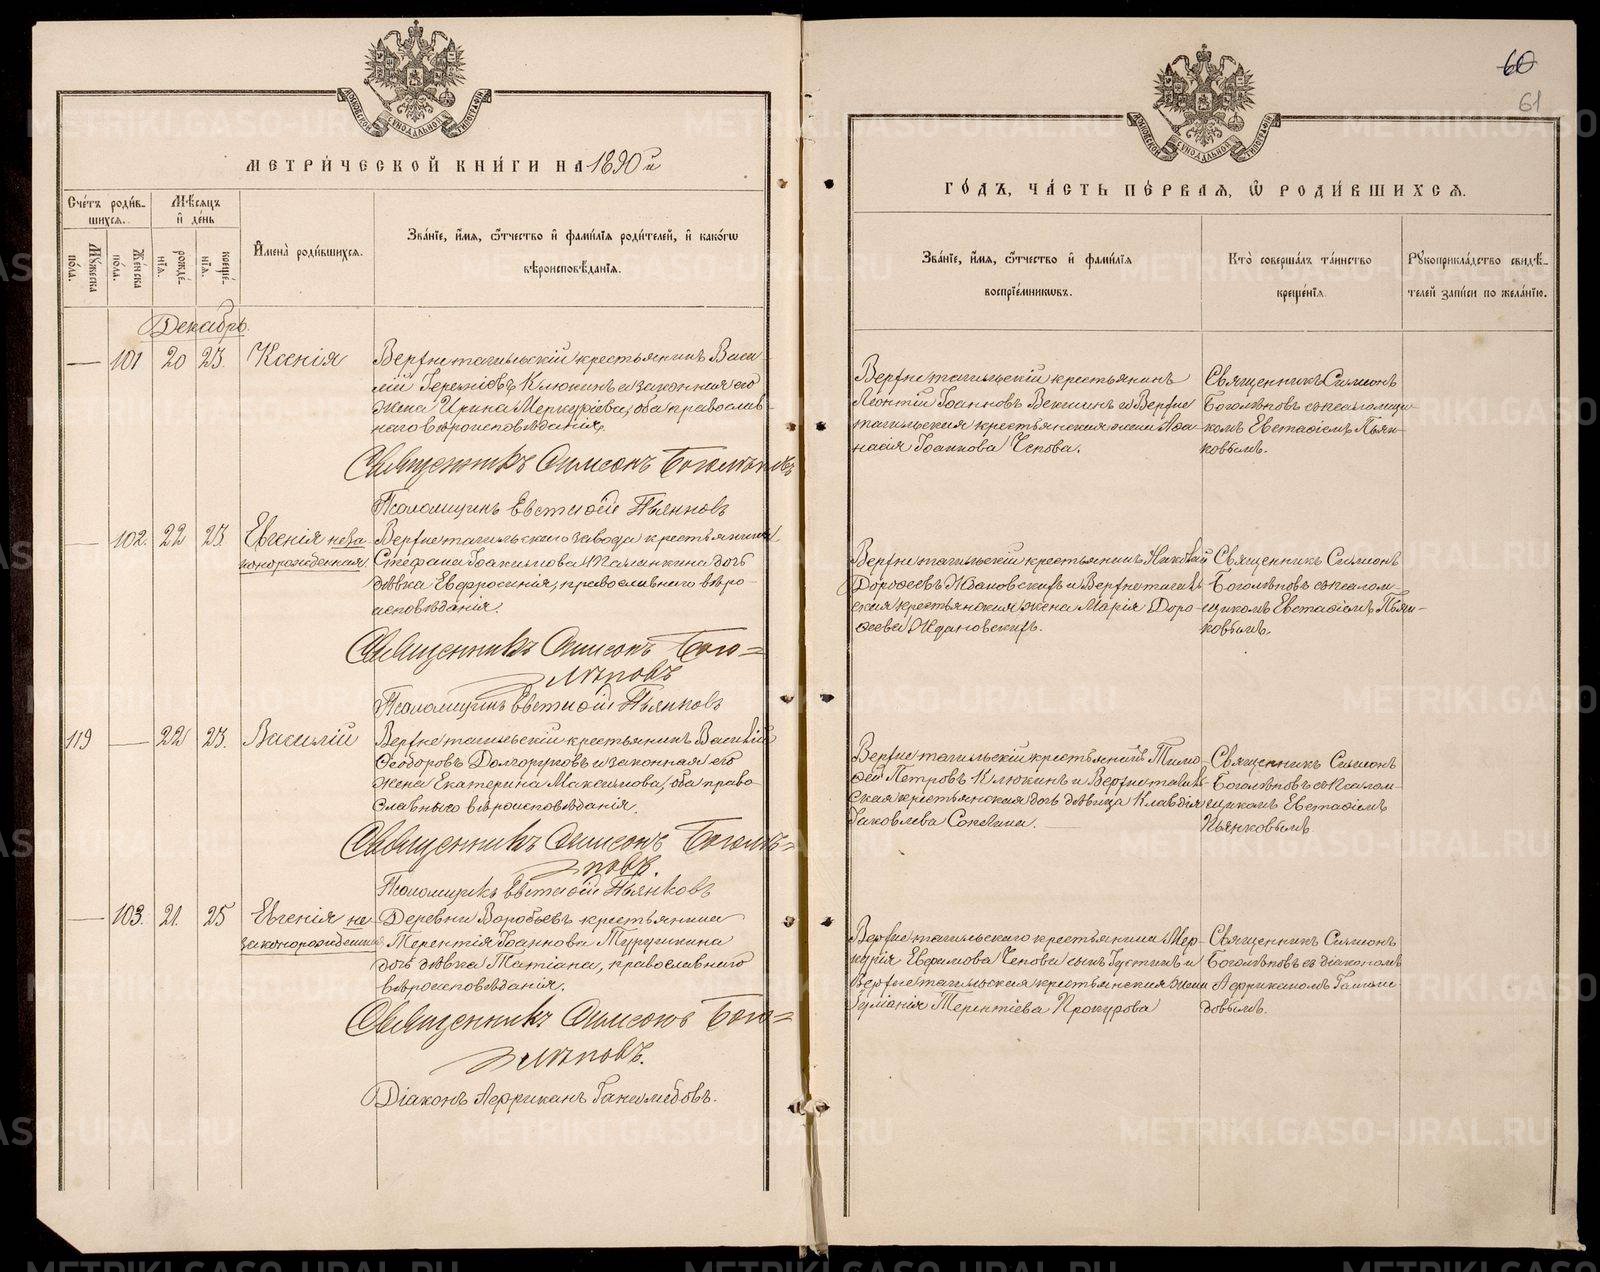 МОСКОВСКОЙ СѴНОДАЛЬНОЙ ТИПОГРАФІИ
МЕТРИ́ЧЕСКОЙ КНИ́ГИ НА 1890 й
Сче́тъ роди́в-
шихсѧ.
Мѣ́сѧцъ
и҆ де́нь
Мꙋ́жеска
по́ла.
Же́нска
по́ла.
рожде́-
нїѧ.
креще́-
нїѧ.
И҆мена̀ роди́вшихсѧ.
Зва́нїе, и҆́мѧ, ѻ҆́тчество и҆ фами́лїѧ роди́телей, и҆ како́гѡ
вѣроисповѣ́данїѧ.
Декабрь.
— 101 20 23. Ксенія
Верхнетагильскій крестьянинъ Васи-
лій Клюкинъ и законная его
жена Ирина Меркуріева, оба православ-
наго вѣроисповѣданія.
Священникъ Симеонъ Боголѣповъ
Псаломщикъ Евстафій Пьянковъ
102. 22 23. Евгенія неза-
конорожденная
Верхнетагильскаго завода крестьянина
Стефана Іоакимова дочь
дѣвка Евфросинія, православнаго вѣро-
исповѣданія.
Священникъ Симеонъ Бого=
лѣповъ
Псаломщикъ Евстафій Пьянковъ
119 — 22 23. Василій
Верхнетагильскій крестьянинъ Василій
Ѳеодоровъ Долгоруковъ и законная его
жена Екатерина Максимова, оба право-
славнаго вѣроисповѣданія.
Священникъ Симеонъ Боголѣ=
повъ.
Псаломщикъ Евстафій Пьянковъ
— 103. 21. 25 Евгенія не-
законорожденная
Деревни Воробьевъ крестьянина
Терентія Іоаннова дочь дѣвка Татіана, православнаго
вѣроисповѣданія.
Священникъ Симеонъ Бого=
лѣповъ.
Діаконъ Африканъ
60
61
МОСКОВСКОЙ СѴНОДАЛЬНОЙ ТИПОГРАФІИ
ГО́ДЪ, ЧА́СТЬ ПЕ́РВАѦ, Ѡ҆ РОДИ́ВШИХСѦ.
Зва́нїе, и҆́мѧ, ѻ҆́тчество и҆ фами́лїѧ
воспрїе́мникѡвъ.
Кто̀ соверша́лъ та́инство
креще́нїѧ.
Рꙋкоприкла́дство свидѣ́-
телей за́писи по жела́нїю.
Верхнетагильскій крестьянинъ
Леонтій Іоанновъ Векшинъ и Верхне-
тагильская крестьянская жена Афа-
насія Іоаннова Чепова.
Священникъ Симеонъ
Боголѣповъ съ псаломщи-
комъ Евстафіемъ Пьян-
ковымъ.
Верхнетагильскій крестьянинъ Николай
Дороѳеевъ Ждановскихъ и Верхнетагиль-
ская крестьянская жена Марія Доро-
ѳеева Ждановскихъ.
Священникъ Симеонъ
Боголѣповъ съ псалом-
щикомъ Евстафіемъ Пьян-
ковымъ.
Верхнетагильскій крестьянинъ Тимо-
ѳей Петровъ Клюкинъ и Верхнетагиль-
ская крестьянская дочь дѣвица Клавдія
Іаковлева Сопегина.
Священникъ Симеонъ
Боголѣповъ съ псалом-
щикомъ Евстафіемъ
Пьянковымъ.
Верхнетагильскаго крестьянина Мер-
курія Евфимова Чепова сынъ Іустинъ и
Верхнетагильская крестьянская жена
Іуліанія Терентіева Прокурова
Священникъ Симеонъ
Боголѣповъ съ діакономъ
Африканомъ
METRIKI.GASO-URAL.RU